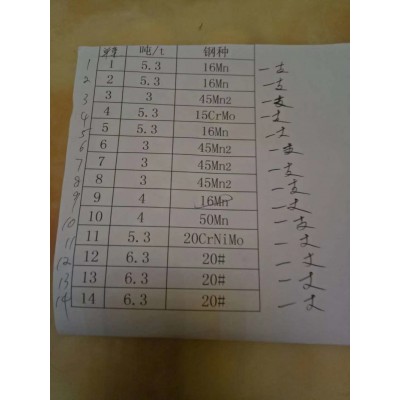 吨/t 钢种
1 1 5.3 16Mn 一支
2 2 5.3 16Mn 一支
3 3 3 45Mn2 一支
4 4 5.3 15CrMo 一支
5 5 5.3 16Mn 一支
6 6 3 45Mn2 一支
7 7 3 45Mn2 一支
8 8 3 45Mn2 一支
9 9 4 16Mn 一支
10 10 4 50Mn 一支
11 11 5.3 20CrNiMo 一支
12 12 6.3 20# 一支
13 13 6.3 20# 一支
14 14 6.3 20# 一支